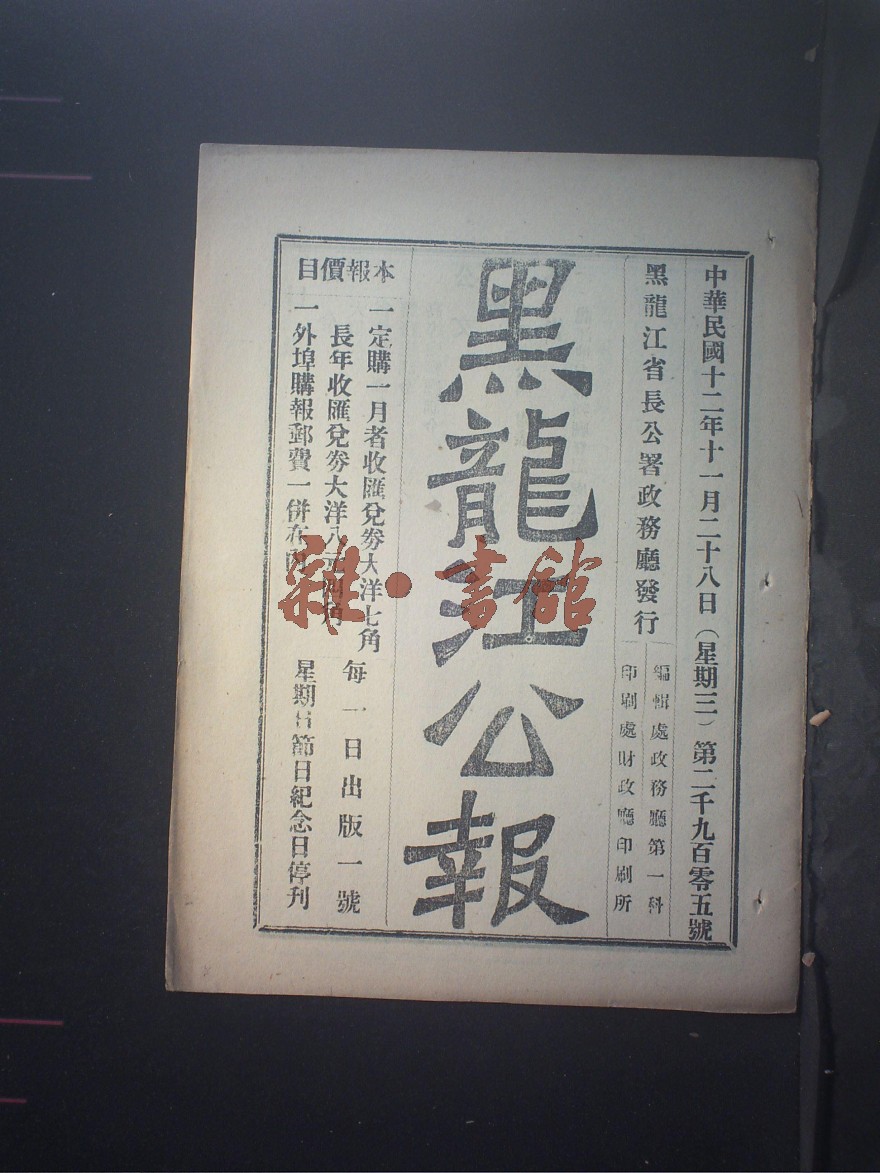 中華民國十二年十一月二十八日（星期三）第二千九百零五號
黑龍江省長公署政務廳發行
編輯處政務廳第一科
印刷處財政廳印刷所
黑龍江公報
本報價目
一定購一月者收匯兌券大洋七角
長年收匯兌券大洋八元四角
一外埠購報郵費一併在內
每一日出版一號
星期日節日紀念日停刊
雜·書館